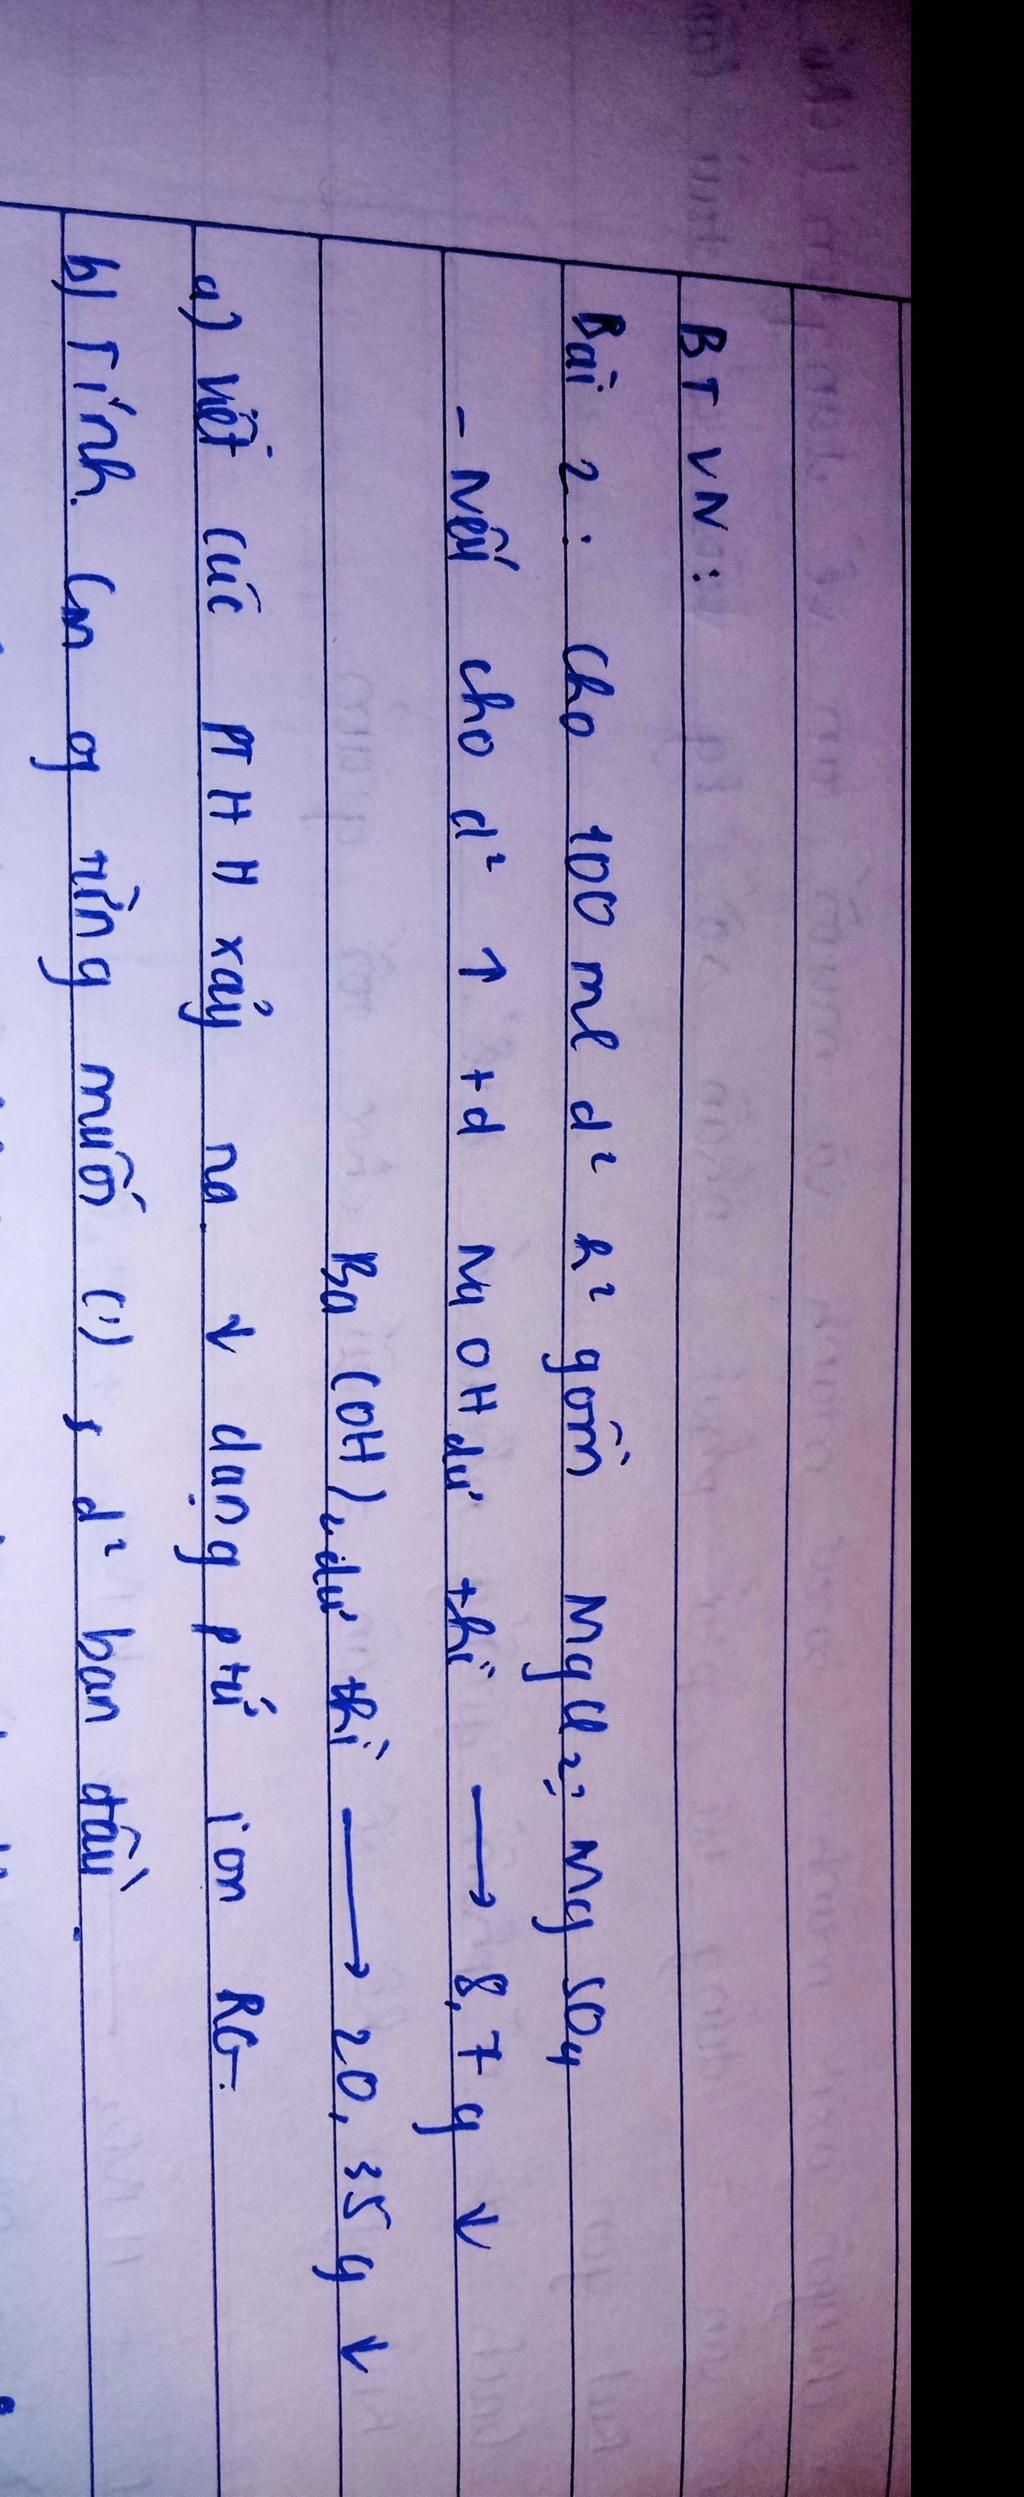 BTVN:
Bài 2: Cho 100 ml d² h² gồm MgCl₂; MgSO₄
- Nếu cho d² ↑ +d NaOH dư thì ⟶ 8,7g ↓
Ba(OH)₂ dư thì ⟶ 20,35g ↓
a) Viết các PTHH xảy ra ↓ dạng ptử ion RG.
b) Tính CM of từng muối (i) , d² ban đầu.